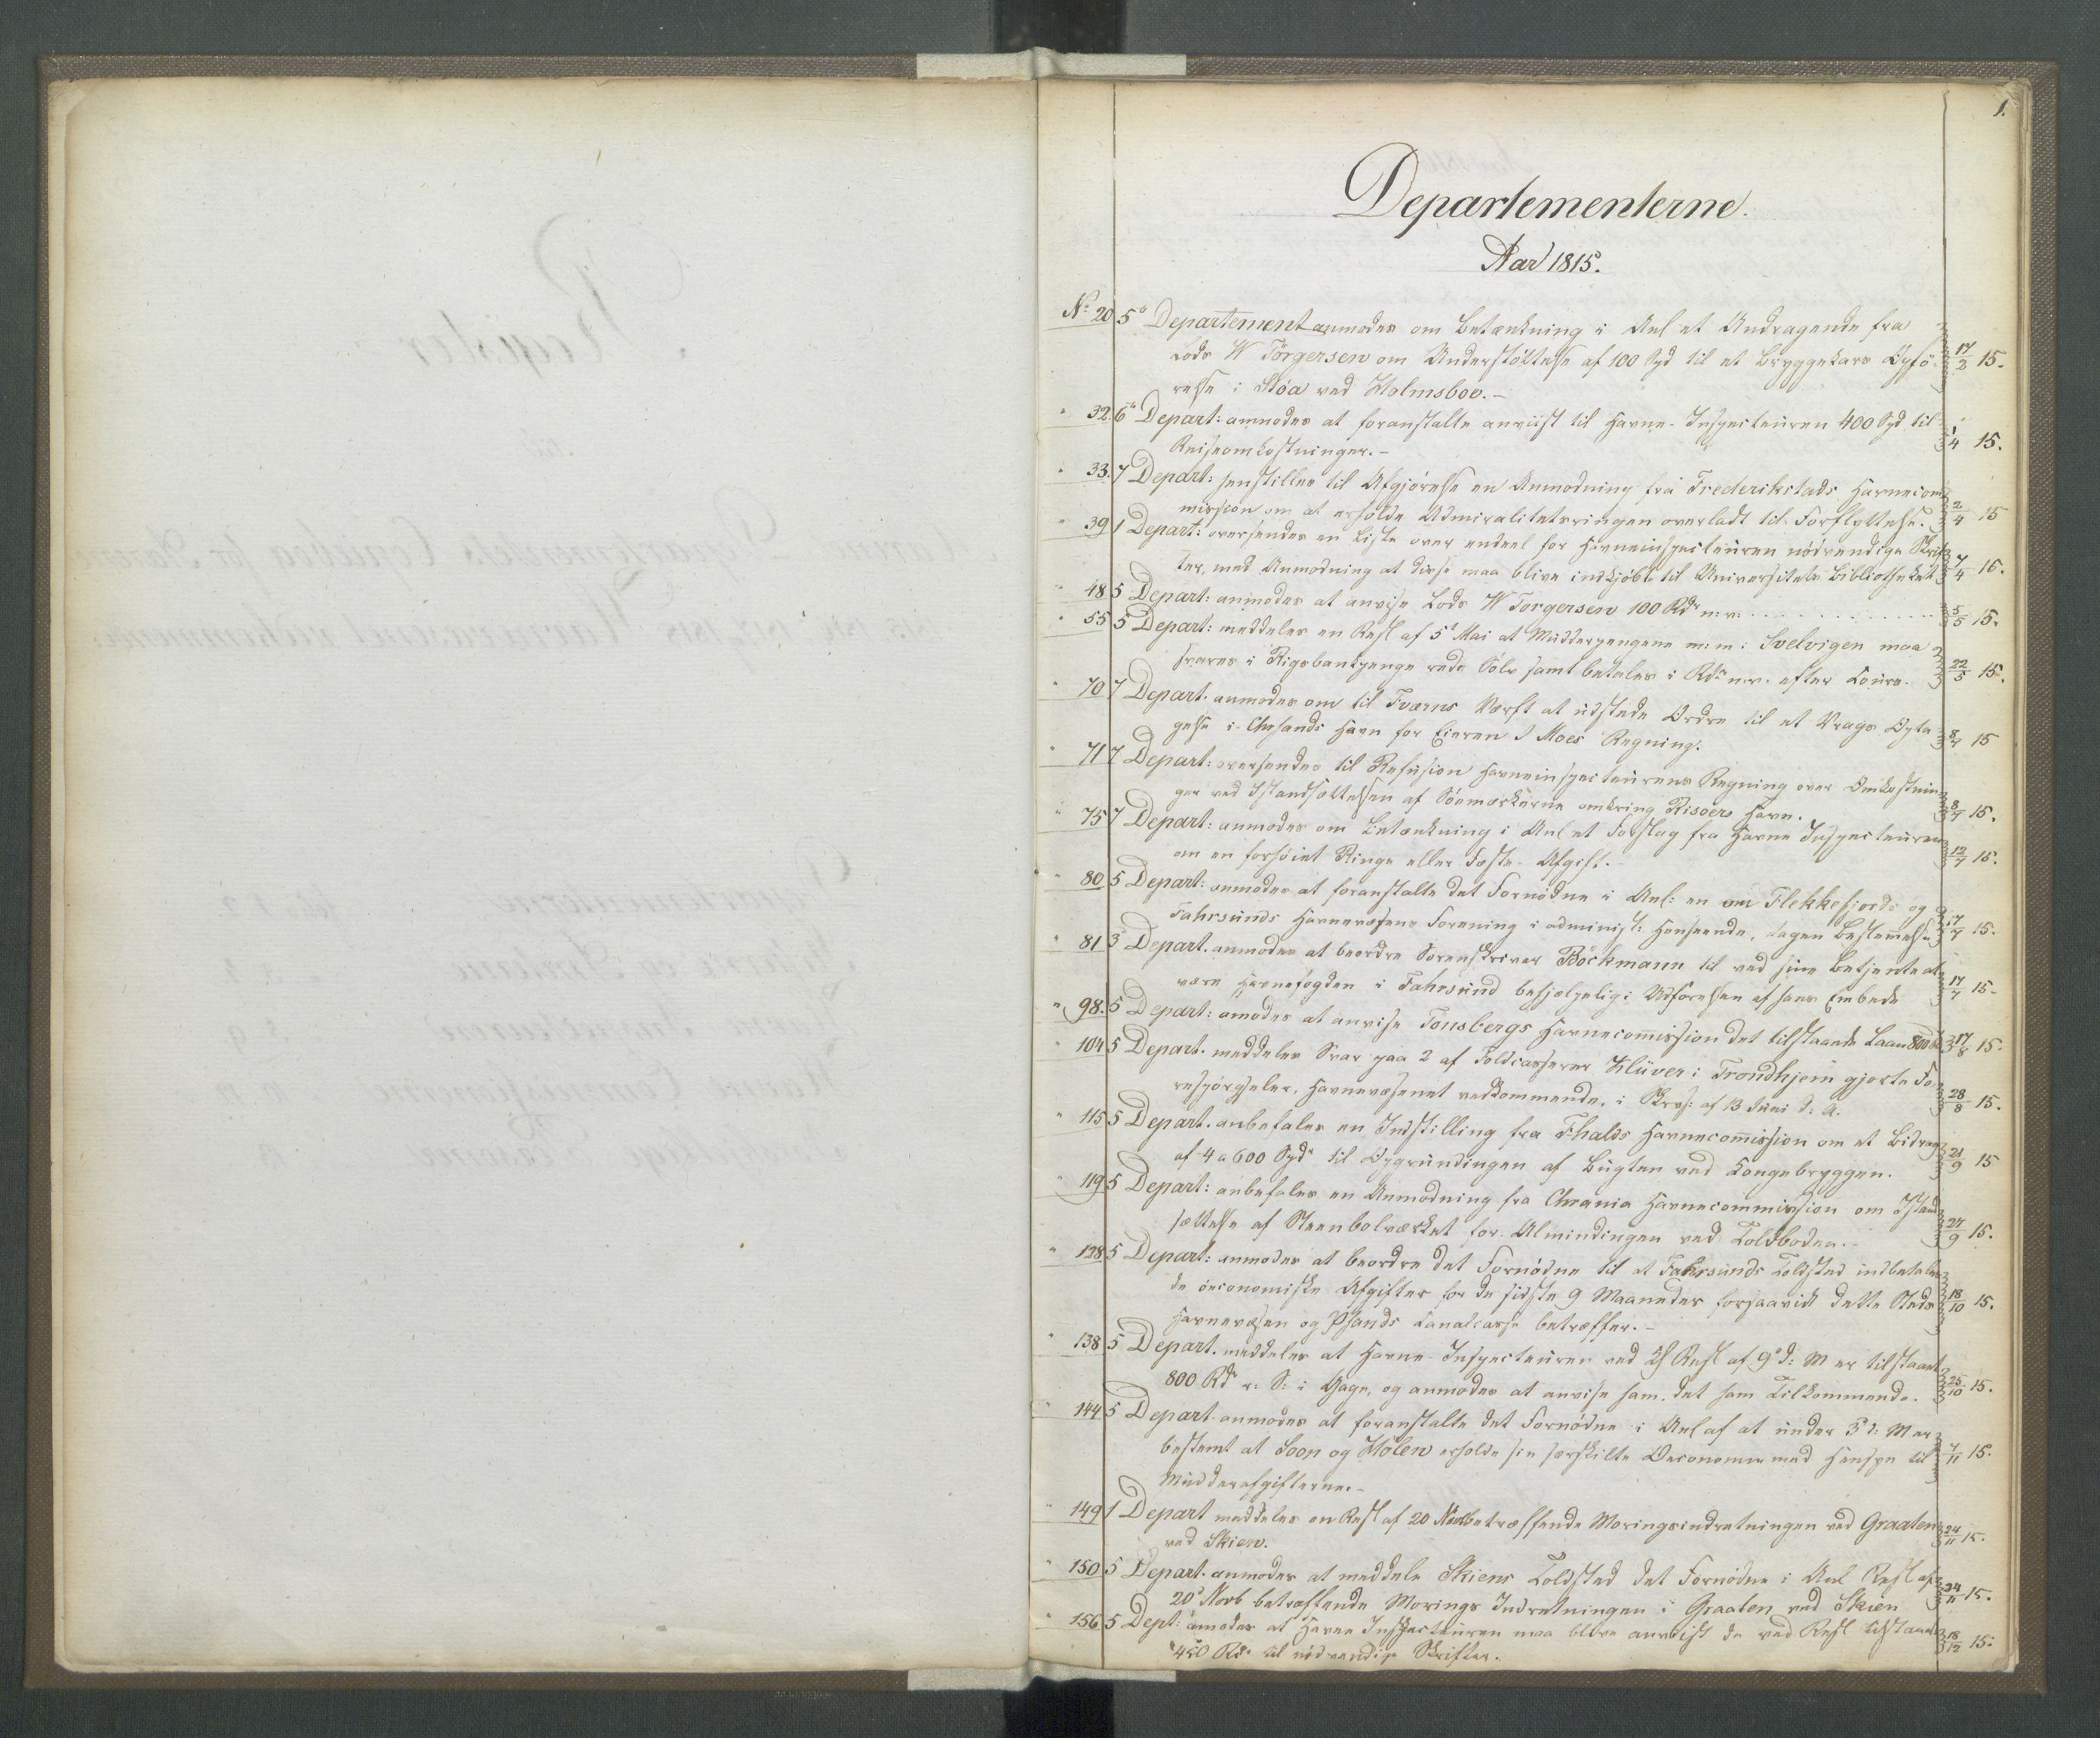 1.
Departementerne.
Aar 1815.
No 20 5te Departement anmodes om Betænkning i Anl et Andragende fra
Lods W Törgersen om Understöttelse af 100 Spd til et Bryggekars Opfö- 17/2 15.
relse i Stöa ved Holmsboe.-
" 32. 6te Depart: anmodes at foranstalte anviist til Havne-Inspecteuren 400 Spd til
Reiseomkostninger.- 1/4 15.
" 33. 7 Depart: henstilles til Afgjörelse en Anmodning fra Frederikstads Havnecom
mission om at erholde Admiralitetsringen overladt til Forflyttelse. 2/4 15
" 39 1 Depart: oversendes en Liste over endeel for Havneinspecteuren nödvendige Skrif
ter, med Anmodning at disse maa blive indkjöbt til Universitets Bibliotheket 7/4 15.
" 48 5 Depart: anmodes at anvise Lods W Torgersen 100 Rdr n: v: 5/5 15.
" 55 5 Depart: meddeles en Resl af 5t Mai at Mudderpengene m: m: i Svelvigen maa
svares i Rigsbankpenge rede Sölv samt betales i Rdr n. v. efter Cours. 22/5 15.
" 70 7 Depart. anmodes om til Tværns Værft at udstede Ordre til et Vrags Opta
gelse i Chrsands Havn for Eieren I Moes Regning. 8/7 15
" 71 7 Depart: oversendes til Refusion Havneinspecteurens Regning over Omkostnin
ger ved Istandsættelsen af Sömærkerne omkring Risoers Havn. 8/7 15.
" 75 7 Depart: anmodes om Betænkning i Anl et Forslag fra Havne Inspecteuren
om en forhöiet Ringe eller Fæste-Afgift.- 12/7 15.
" 80 5 Depart: anmodes at foranstalte det Fornödne i Anl: en om Flekkefjords og
Fahrsunds Havnevæsens Forening i administ: Henseende, tagen Bestemmelse 17/7 15.
" 81 3 Depart. anmodes at beordre Sorenskriver Böckmann til ved sine Betjente at
være Havnefogden i Fahrsund behjelpelig i Udförelsen af hans Embede 17/7 15-
" 98. 5 Depart: anmodes at anvise Tonsbergs Havnecommission det tilstaaede Laan 800 Rd 17/8 15.
" 104 5 Depart. meddeles Svar paa 2 af Toldcasserer Klüver i Trondhjem gjorte Fo-
respörgseler, Havnevæsenet vedkommende, i Skrs: af 13 Juni d: A. 28/8 15.
" 115 5 Depart. anbefales en Indstilling fra Fhalds Havnecommission om et Bidrag
af 4 a 600 Spdr til Opgrundingen af Bugten ved Kongebryggen. 21/9 15
" 119 5 Depart: anbefales en Anmodning fra Chrania Havnecommission om Istand
sættelse af Steenbolværket for Almindingen ved Toldboden.- 27/9 15.
" 128 5 Depart: anmodes at beordre det Fornödne til at Fahrsunds Toldsted indbetales
de oeconomiske Afgifter for de sidste 9 Maaneder forsaavidt dette Steds 18/10 15.
Havnevæsen og Canalcasse betræffer.-
" 138 5 Depart. meddeles at Havne-Inspecteuren ved Resl af 9de d: M er tilstaaet
800 Rdr r: S: i Gage, og anmodes at anvise ham det ham Tilkommende. 25/10 15.
" 144 5 Depart anmodes at foranstalte det Fornödne i Anl af at under 3 d: M er
bestemt at Soon og Holen erholde sin særskilte Oeconomie med Hensyn til 7/11 15.
Mudderafgifterne.-
" 149 1 Depart meddeles en Resl af 20 Novb betræffende Moringsindretningen ved Graaten
ved Skien. 24/11 15.
" 150 5 Depart. anmodes at meddele Skiens Toldsted det Fornödne i Anl Resl af
20de Novb betræffende Morings Indretningen i Graaten ved Skien 24/11 15.
" 156 5 Dept: anmodes at Havne Inspecteuren maa blive anviist de ved Resl tilstaaede
450 Rdr til nödvendige Skrifter. 18/12 15.